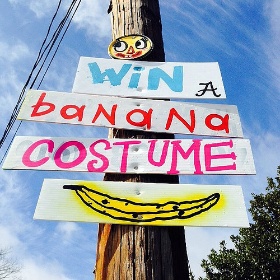 WiN A
baNANa
COSTUME